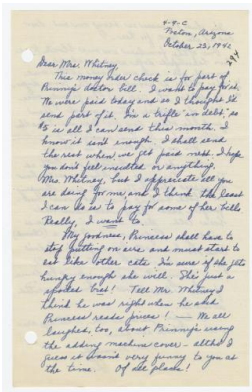 4-9-C
Poston, Arizona
October 23, 1942
Dear Mrs. Whitney,
This money order check is for part of
Princess' doctor bill. I want to pay for it.
We were paid today and so I thought I'd
send part of it. I'm a trifle "in debt", so
$5 is all I can send this month. I
know it isn't enough. I shall send
the rest when we get paid next. I hope
you don't feel insulted or anything
Mrs. Whitney, but I appreciate all you
are doing for me and I think the least
I can do is to pay for some of her bills
Really, I want to.
My goodness, Princess shall have to
stop putting on airs and must start to
eat like other cats. I'm sure if she gets
hungry enough she will. She's just a
spoiled brat! Tell Mr. Whitney I
think he was right when he said
Princess reads prices! — We all
laughed, too, about Princess's using
the adding machine cover - altho I
guess it wasn't very funny to you at
the time. Of all places!